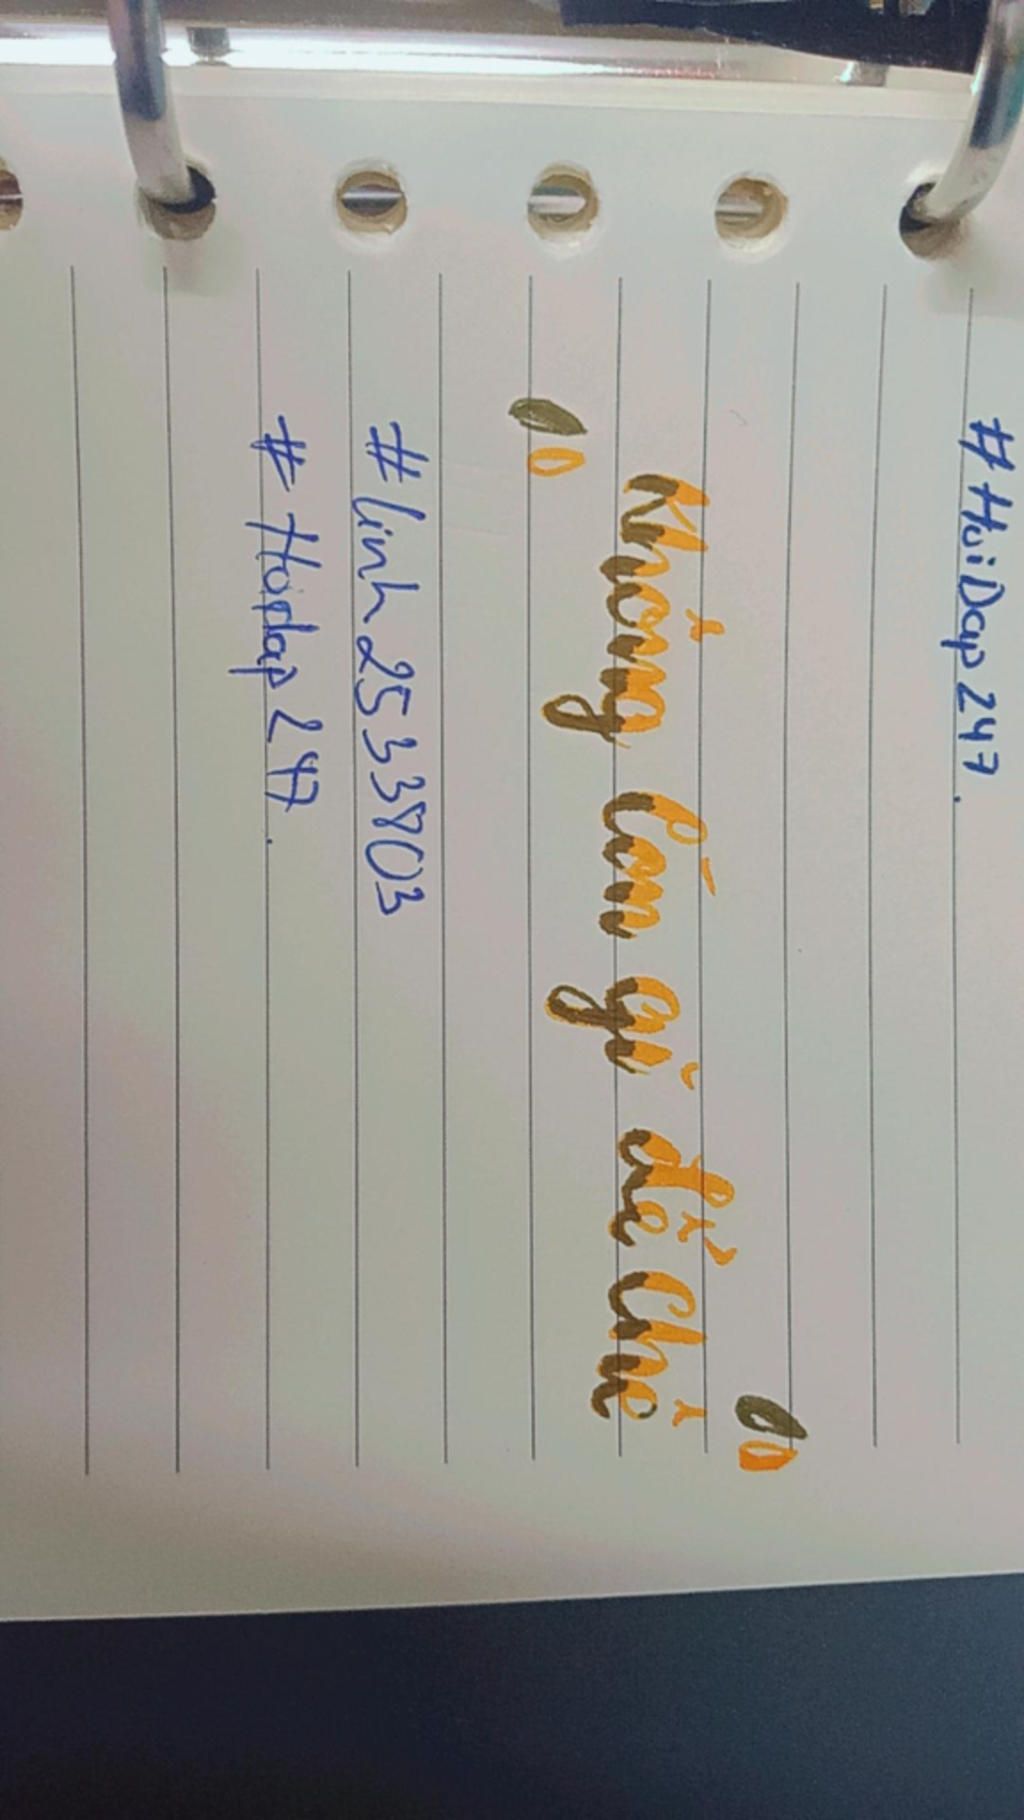 #HoiDap247.
Không Còn gì để Chê
#linh2533803
#Hoidap247.